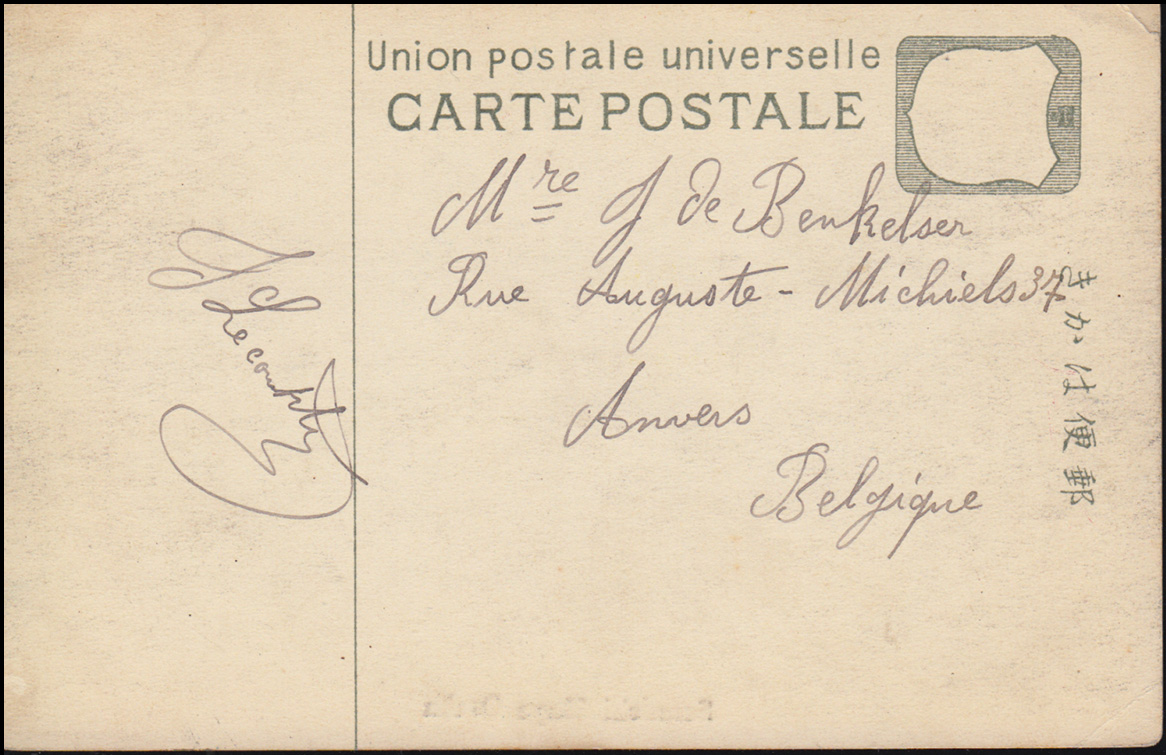 Union postale universelle
CARTE POSTALE
Mre J de Benkelser
Rue Auguste - Michiels 37
Anvers
Belgique
きかは便郵